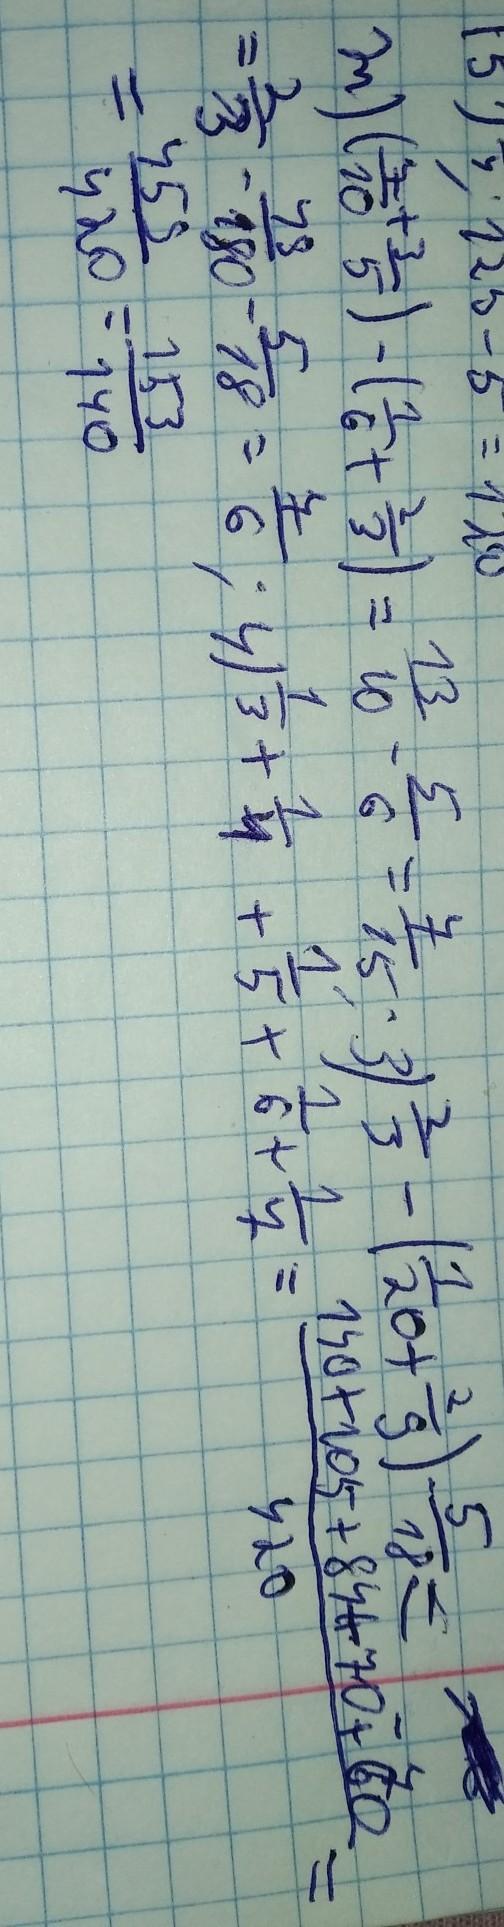 5) 4,125-5=120
2) (7/10+3/5)-(1/6+2/3)=13/10-5/6=7/15; 3) 2/3-(1/20+2/9)-5/18=
=2/3-49/180-5/18=7/6; 4) 1/3+1/4+1/5+1/6+1/7=(140+105+84+70+60)/420=
=459/420=153/140